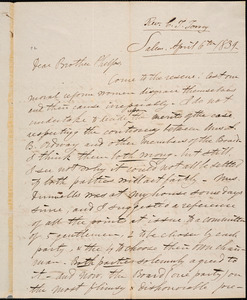 Rev. C. T. Torrey
Salem, April 6th 1839.
Dear Brother Phelps,
Come to the rescue; lest our
moral reform women disgrace themselves
and their cause irreparably. I do not
undertake to decide upon the merits of the case
respecting the controversy between Mrs.
B. & others members of the Board.
I think them both wrong but still
I see not why it could not be settled
if both parties
was at my house some days
since, and I suggested a reference
of all the points at issue to a committee
of 4 gentlemen, 2 to be chosen by each
party, & the 4 to choose their own chair-
man. Both parties solemnly agreed to
it. And now the Board, one party, on
the most flimsy & dishonorable pre-